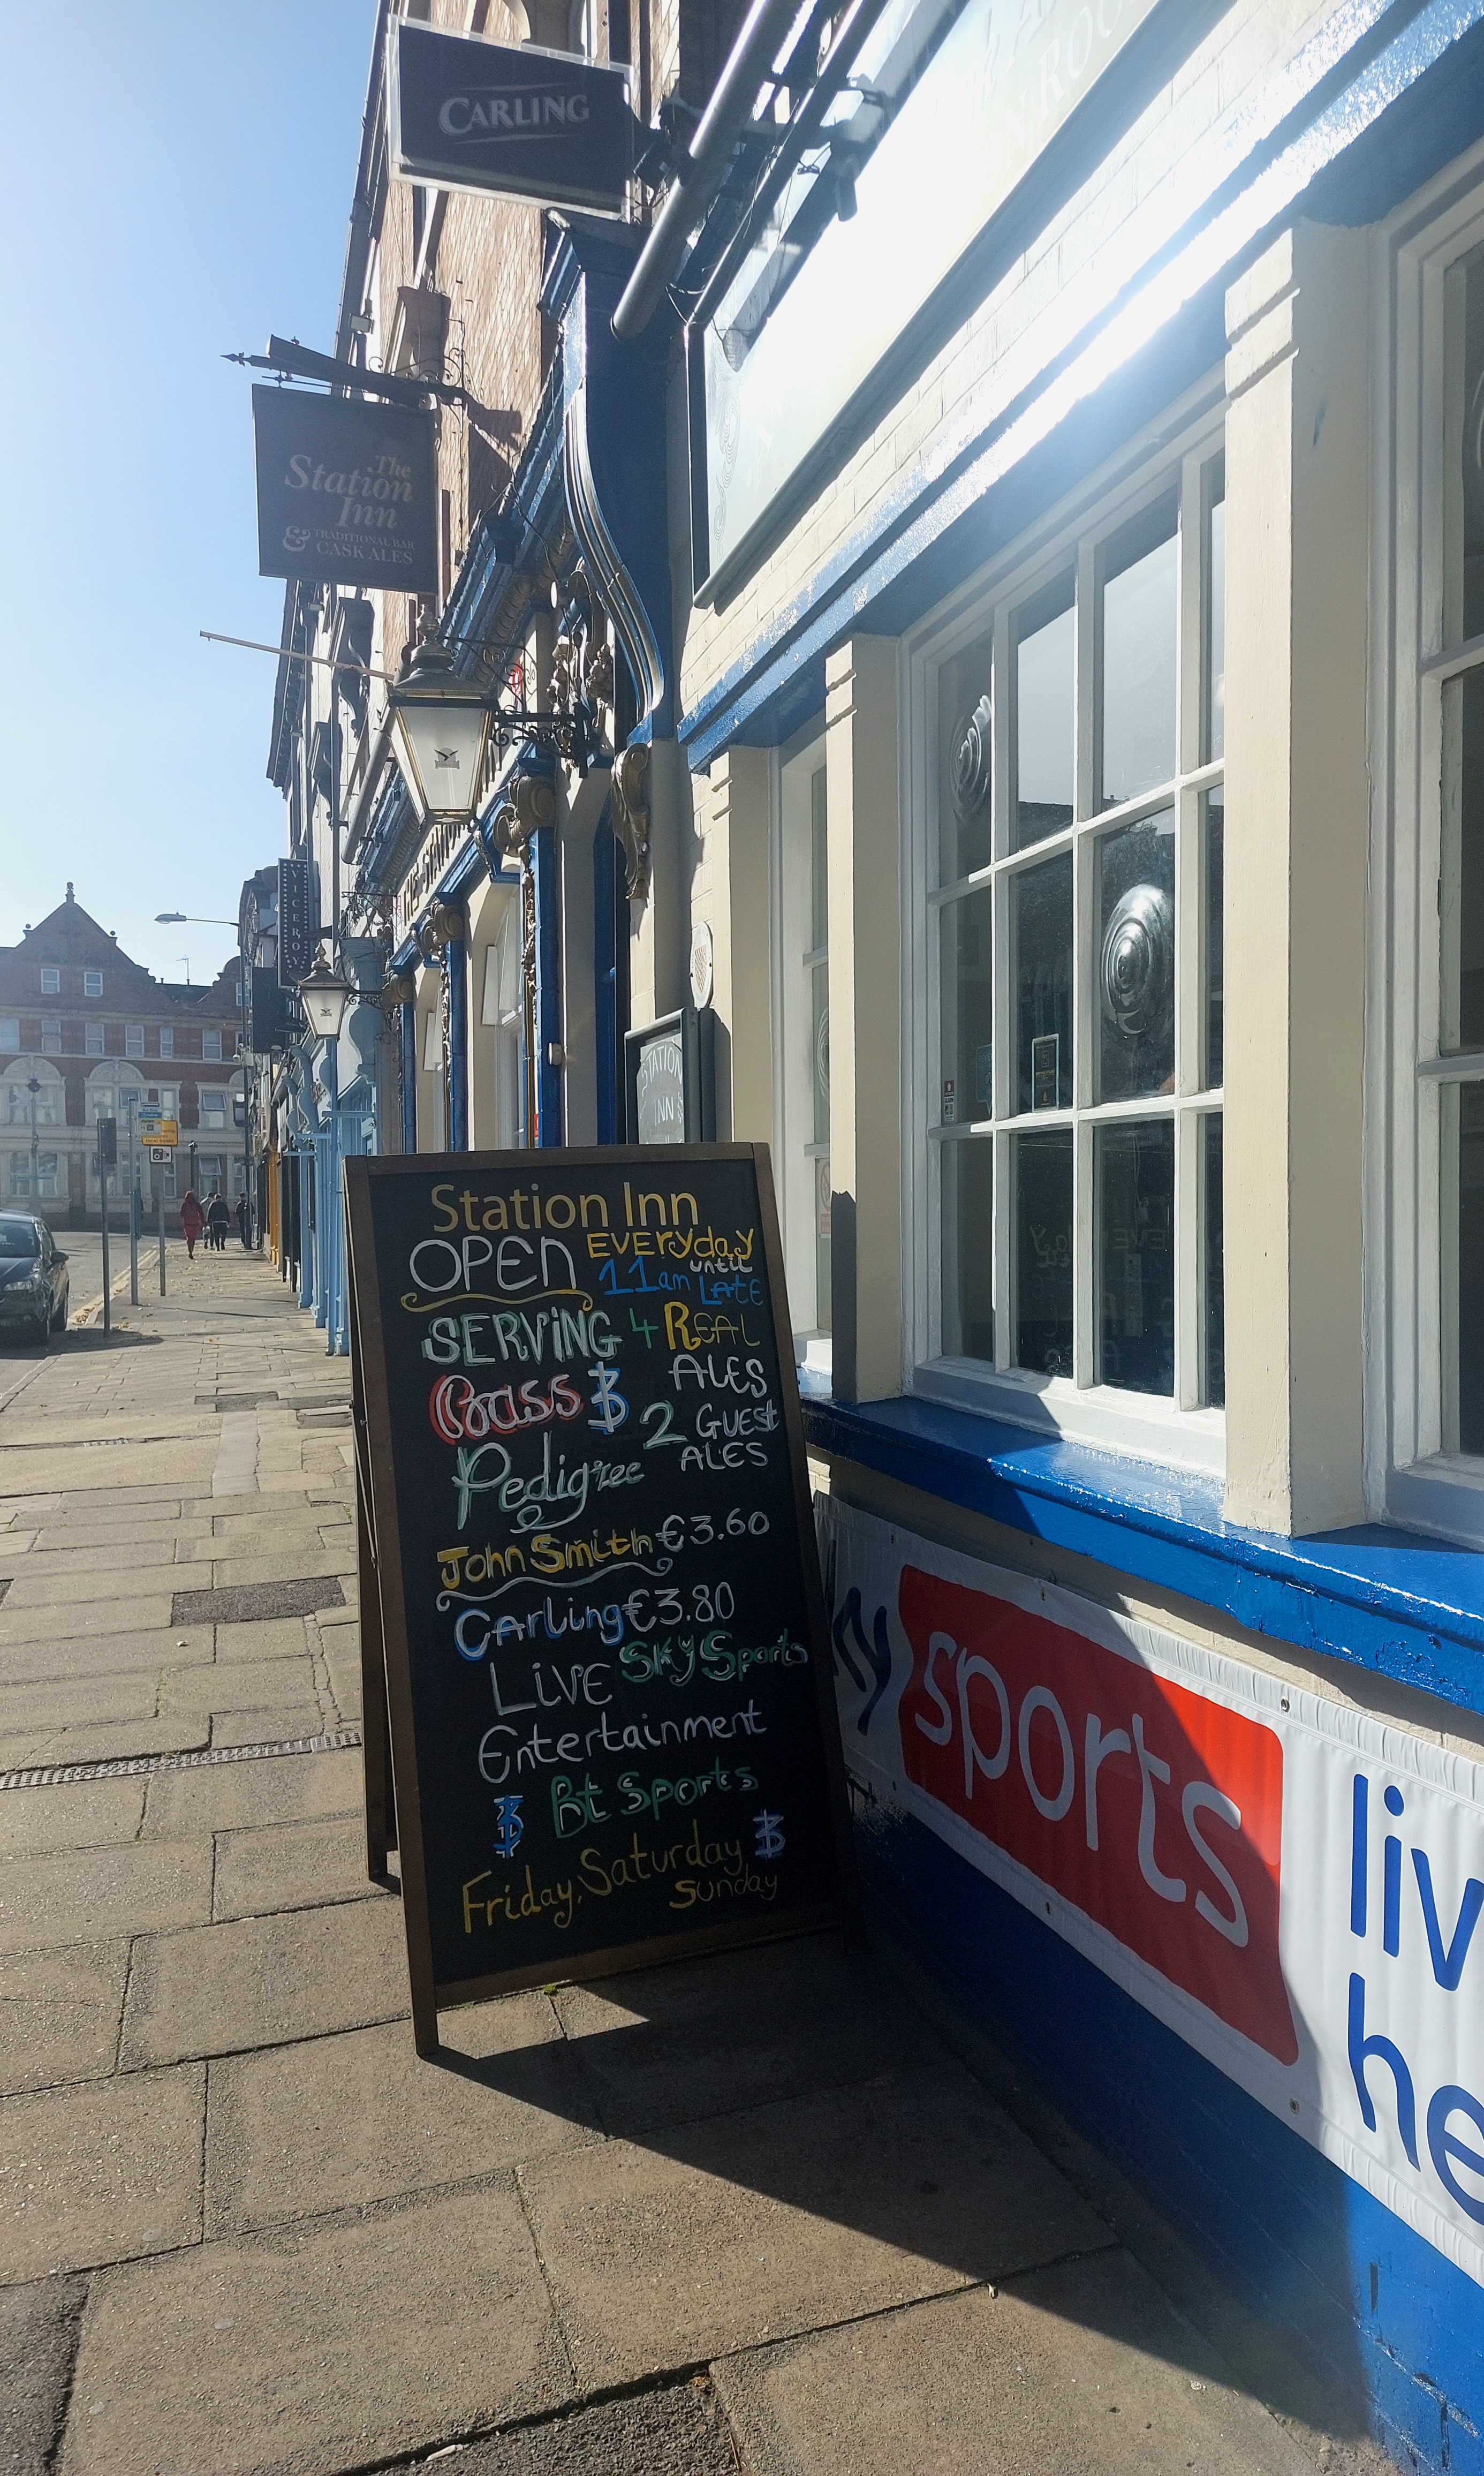 CARLING
The
Station
Inn
& TRADITIONAL BAR
CASK ALES
VICEROY
THE STAT
STATION
INN
Station Inn
OPEN EVERYday
11am until LAtE
SERViNG 4 REAL
ALES
Bass &
2 GUESt
ALES
Pedigree
John Smith £3.60
Carling £3.80
LiVE SKy Sports
Entertainment
& Bt Sports
Friday, Saturday &
Sunday
sky sports
liv
he